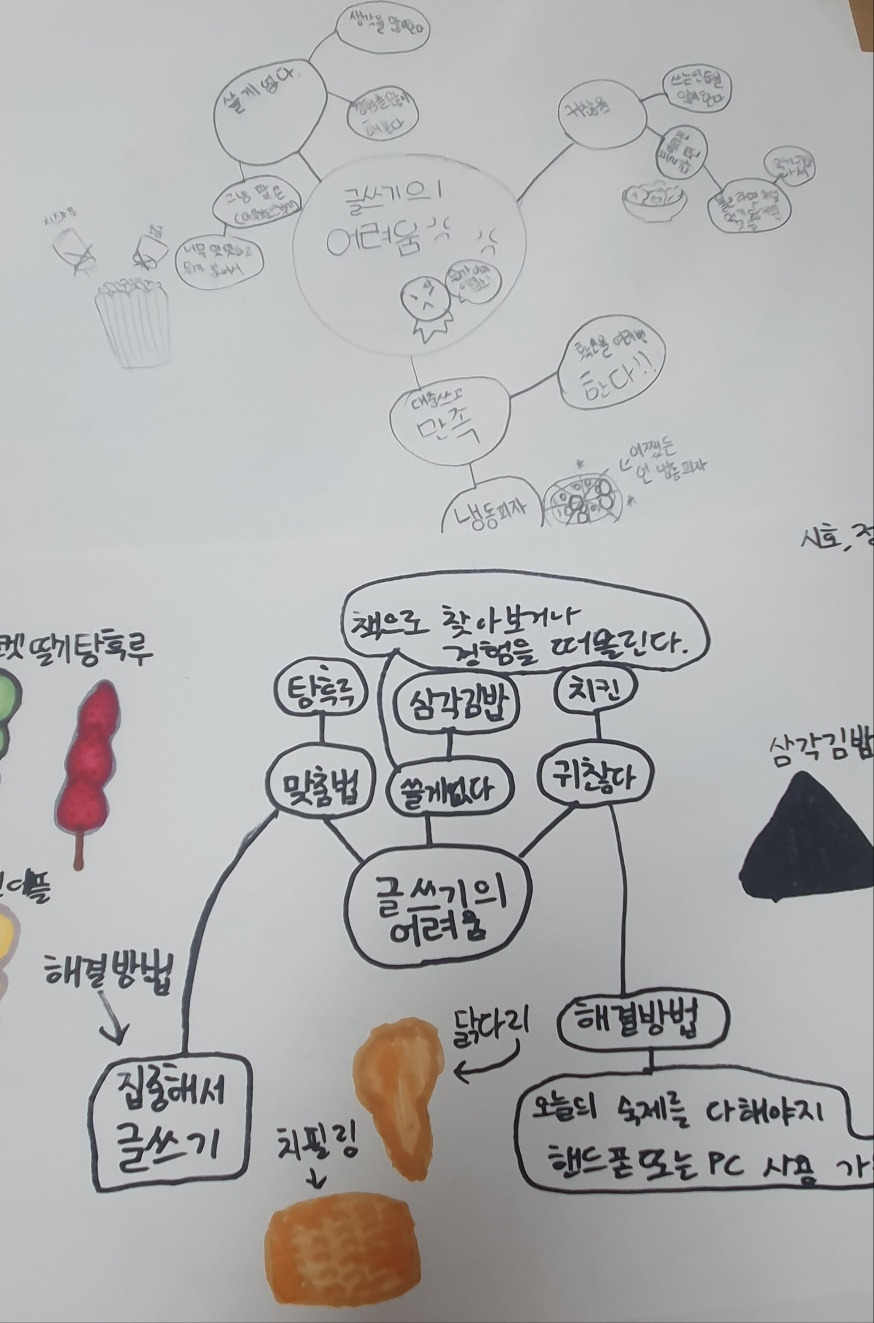 생각을 많이한다
쓸게 없다.
경험을 많이
해본다
그냥 팝콘
너무 맛있고
글쓰기의
어려움
귀찮음
쓰는연습을
많이 한다
대충쓰고
만족
확인을 여러번
한다!!
냉동피자
어쨌든
언 냉동피자
시호,
책으로 찾아보거나
경험을 떠올린다.
켓 딸기탕후루
탕후루
삼각김밥
치킨
맞춤법
쓸게없다
귀찮다
삼각김밥
글쓰기의
어려움
해결방법
집중해서
글쓰기
닭다리
해결방법
치필링
오늘의 숙제를 다해야지
핸드폰 또는 PC 사용 가